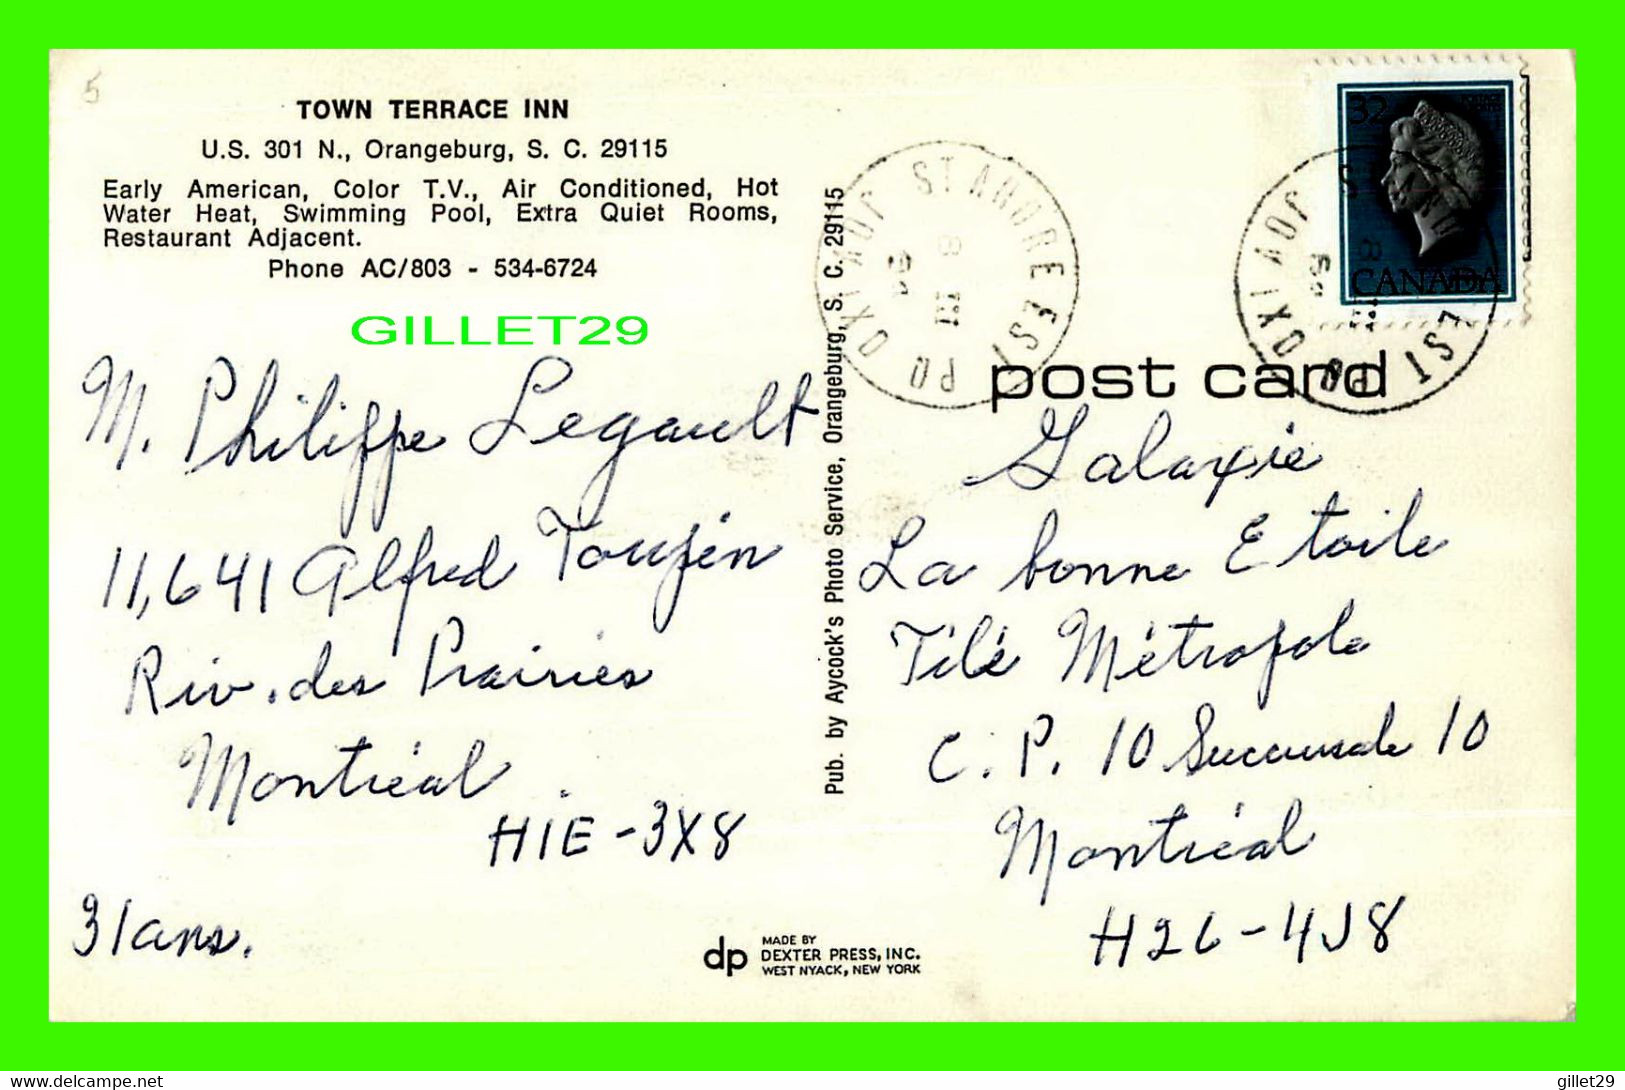 5
TOWN TERRACE INN
U.S. 301 N., Orangeburg, S. C. 29115
Early American, Color T.V., Air Conditioned, Hot
Water Heat, Swimming Pool, Extra Quiet Rooms,
Restaurant Adjacent.
Phone AC/803 - 534-6724
GILLET29
M. Philippe Legault
11,641 Alfred
Riv. des Prairies
Montréal
H1E-3X8
31 ans.
Pub. by Aycock's Photo Service, Orangeburg, S. C. 29115
dp
MADE BY
DEXTER PRESS, INC.
WEST NYACK, NEW YORK
ST ANDRE EST
PQ
J0V 1X0
8 III
32
CANADA
post card
Galaxie
La bonne Etoile
Télé Métropole
C.P. 10 Succursale 10
Montréal
H2L-4J8
gillet29
https://www.delcampe.net
gillet29